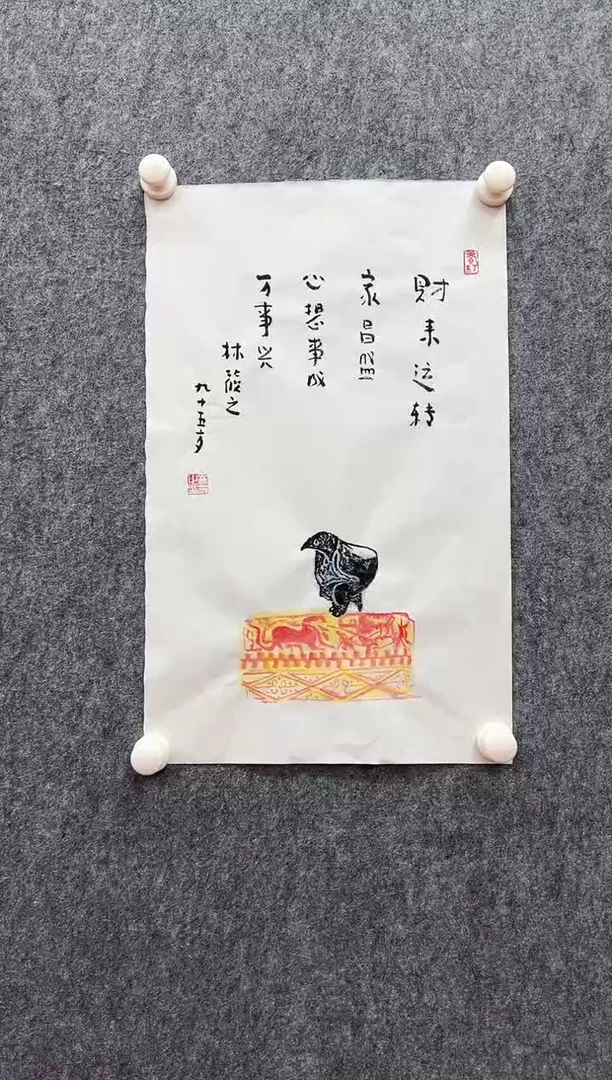 財来运转
家昌盛
心想事成
万事兴
林筱之
九十五岁